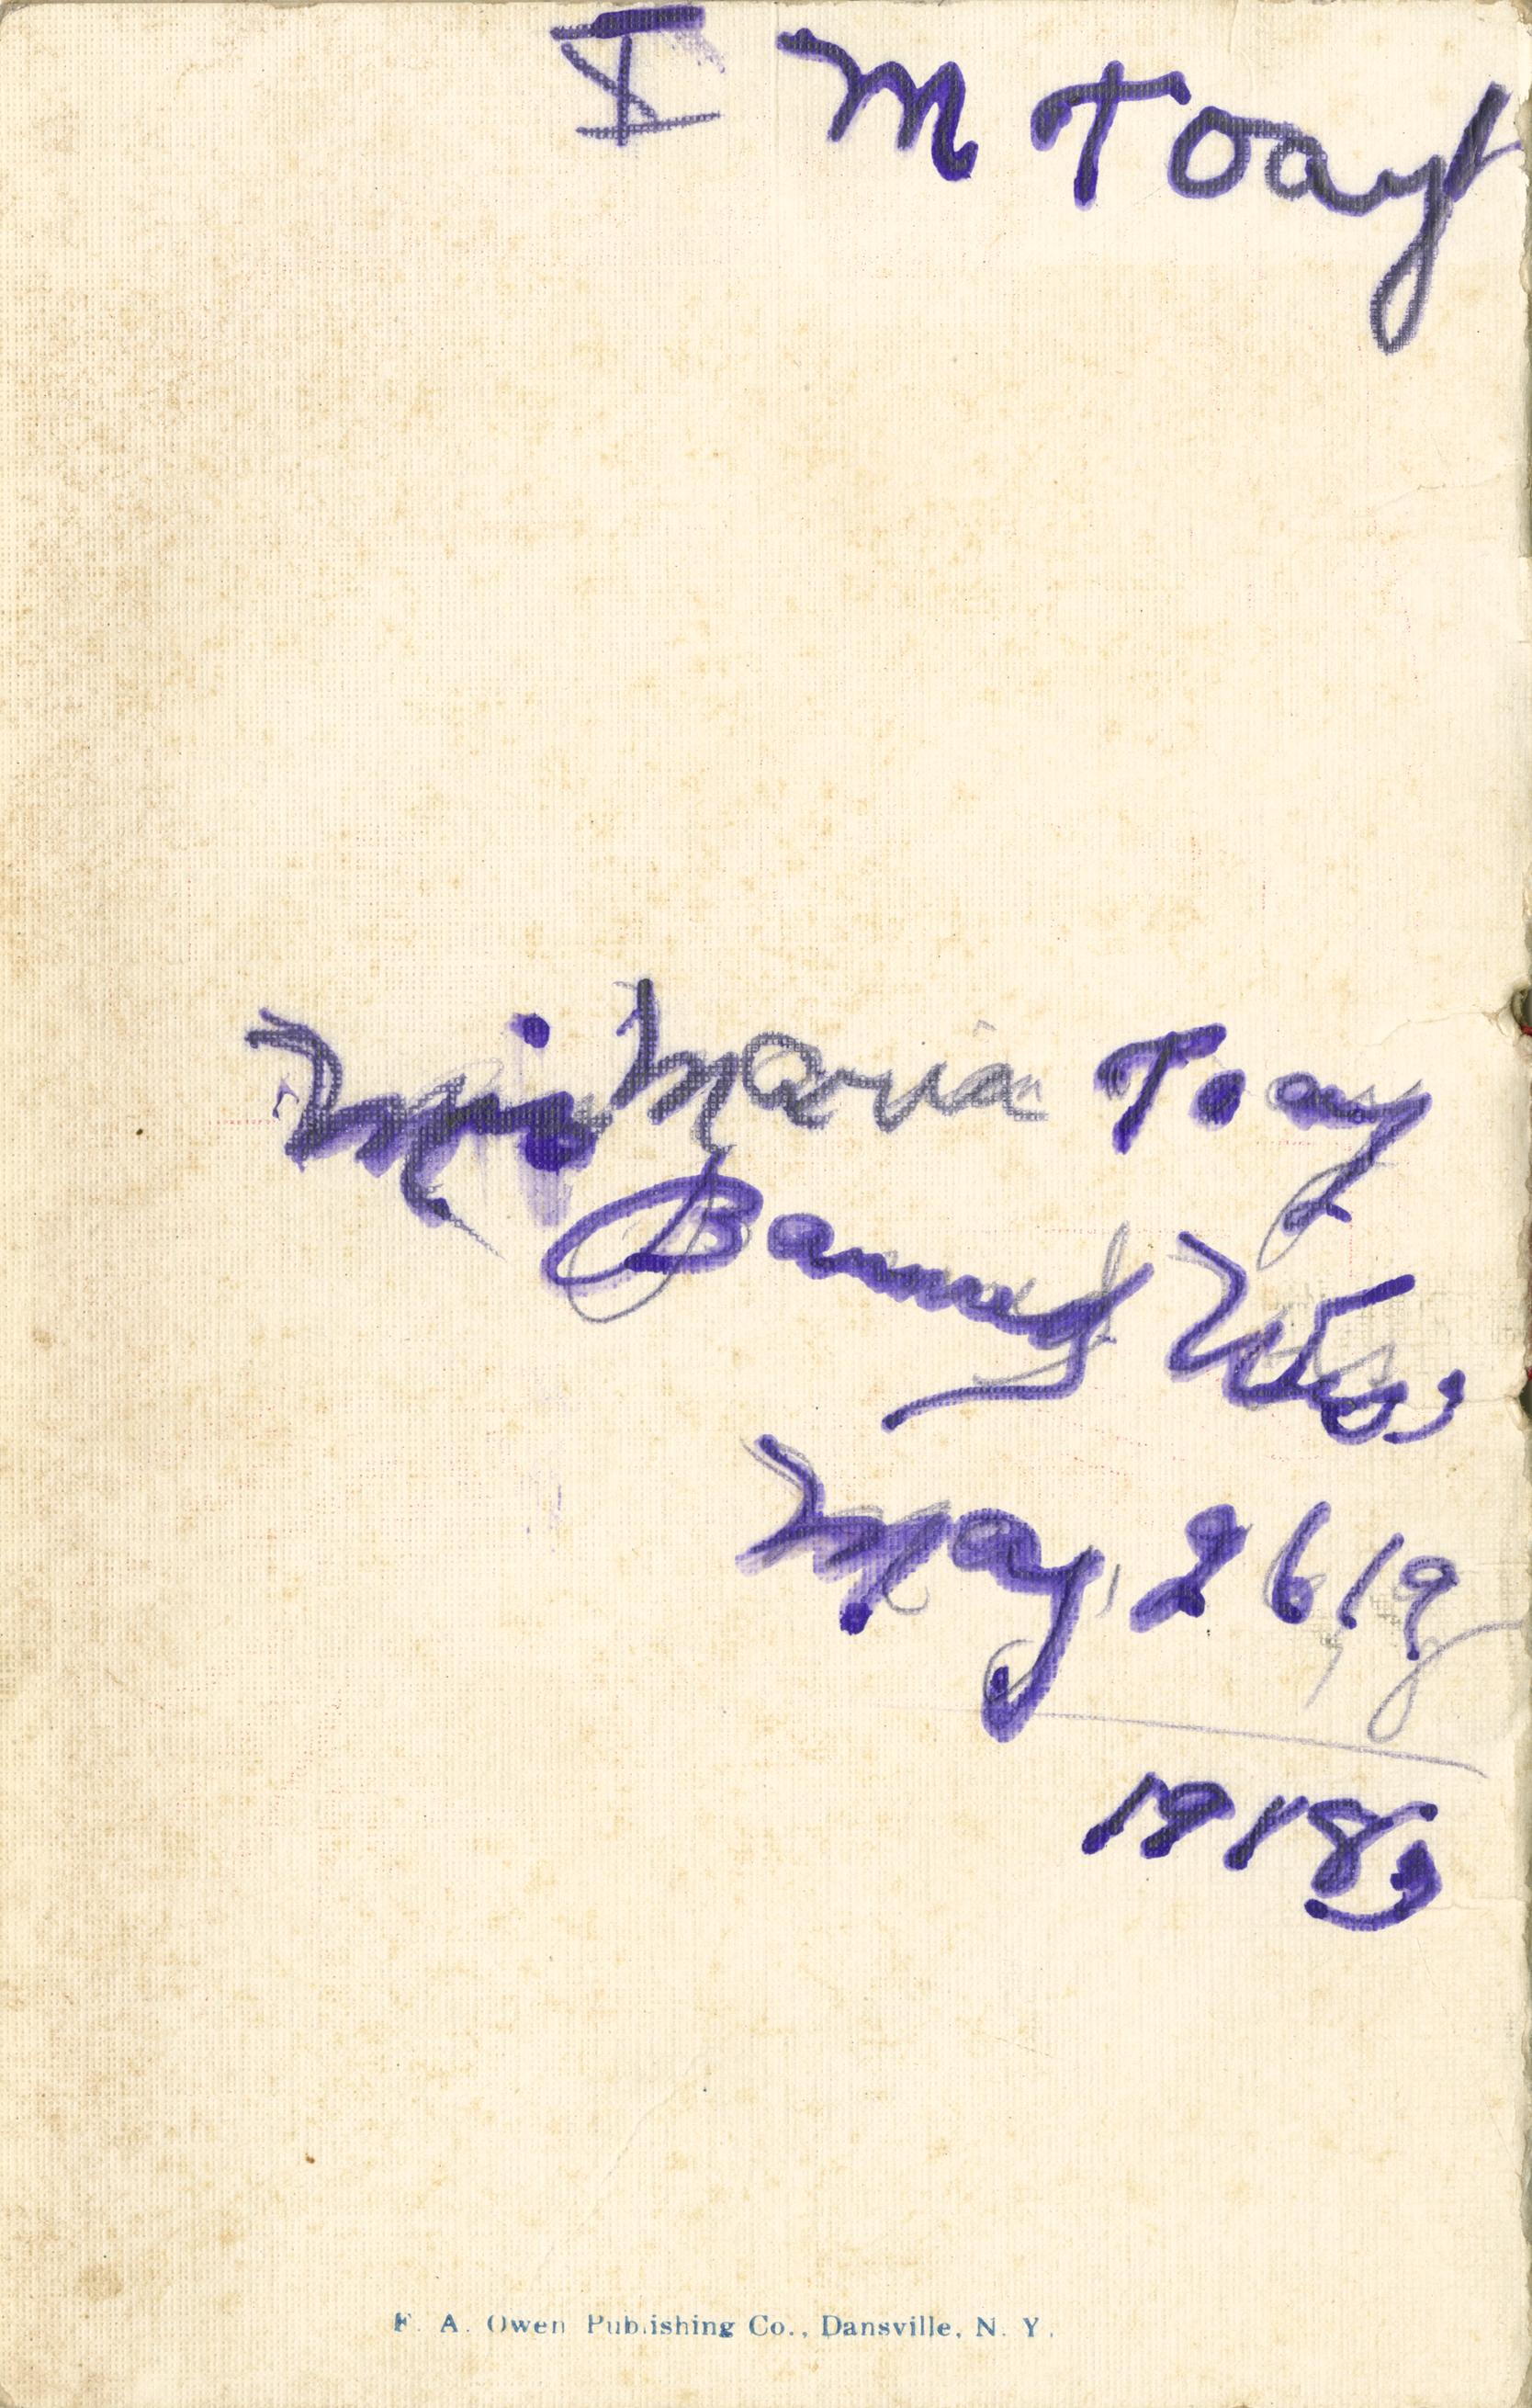 I M Toay
Mis Maria Toay
Barneveld Wis,
May 26, 19
1918,
F. A. Owen Publishing Co., Dansville, N. Y.